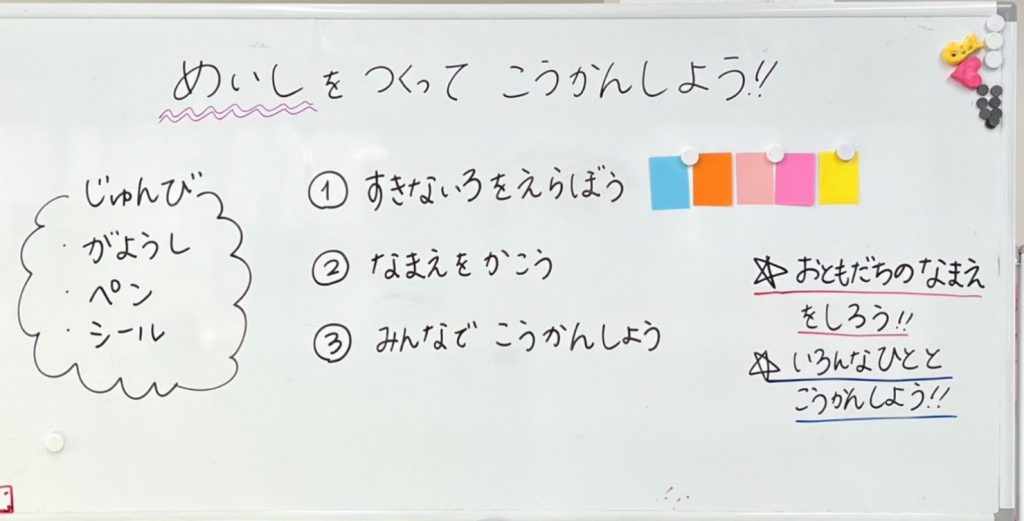 めいしを つくって こうかんしよう!!
じゅんび
・がようし
・ペン
・シール
① すきないろをえらぼう
② なまえをかこう
③ みんなで こうかんしよう
☆ おともだちのなまえ
をしろう!!
☆ いろんなひとと
こうかんしよう!!